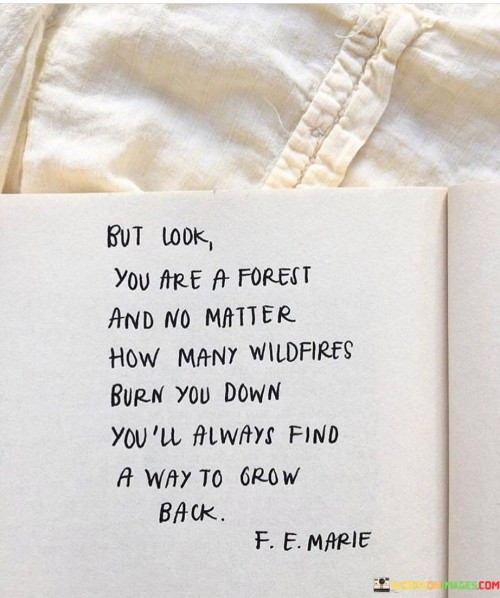 BUT LOOK,
YOU ARE A FOREST
AND NO MATTER
HOW MANY WILDFIRES
BURN YOU DOWN
YOU'LL ALWAYS FIND
A WAY TO GROW
BACK.
F. E. MARIE